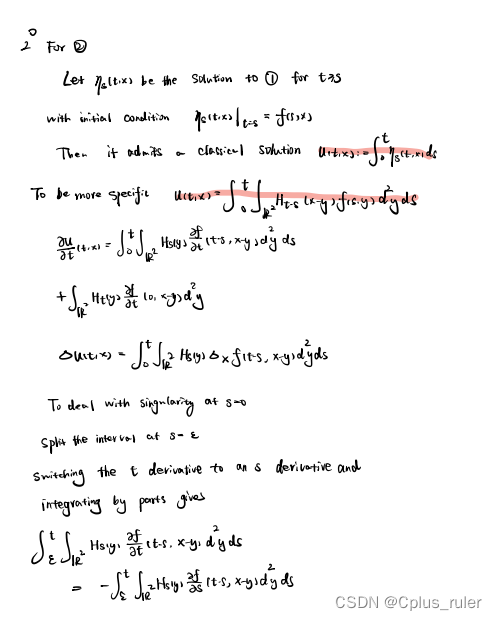 2° For ②
Let η_s(t,x) be the solution to ① for t≥s
with initial condition η_s(t,x)|_{t=s} = f(s,x)
Then it admits a classical solution u(t,x) := ∫_0^t η_s(t,x) ds
To be more specific u(t,x) = ∫_0^t ∫_{ℝ^2} H_{t-s}(x-y) f(s,y) d^2y ds
∂u/∂t (t,x) = ∫_0^t ∫_{ℝ^2} H_s(y) ∂f/∂t (t-s, x-y) d^2y ds
+ ∫_{ℝ^2} H_t(y) ∂f/∂t (0, x-y) d^2y
Δu(t,x) = ∫_0^t ∫_{ℝ^2} H_s(y) Δ_x f(t-s, x-y) d^2y ds
To deal with singularity at s=0
split the interval at s=ε
switching the t derivative to an s derivative and
integrating by parts gives
∫_ε^t ∫_{ℝ^2} H_s(y) ∂f/∂t (t-s, x-y) d^2y ds
= -∫_ε^t ∫_{ℝ^2} H_s(y) ∂f/∂s (t-s, x-y) d^2y ds
CSDN @Cplus_ruler